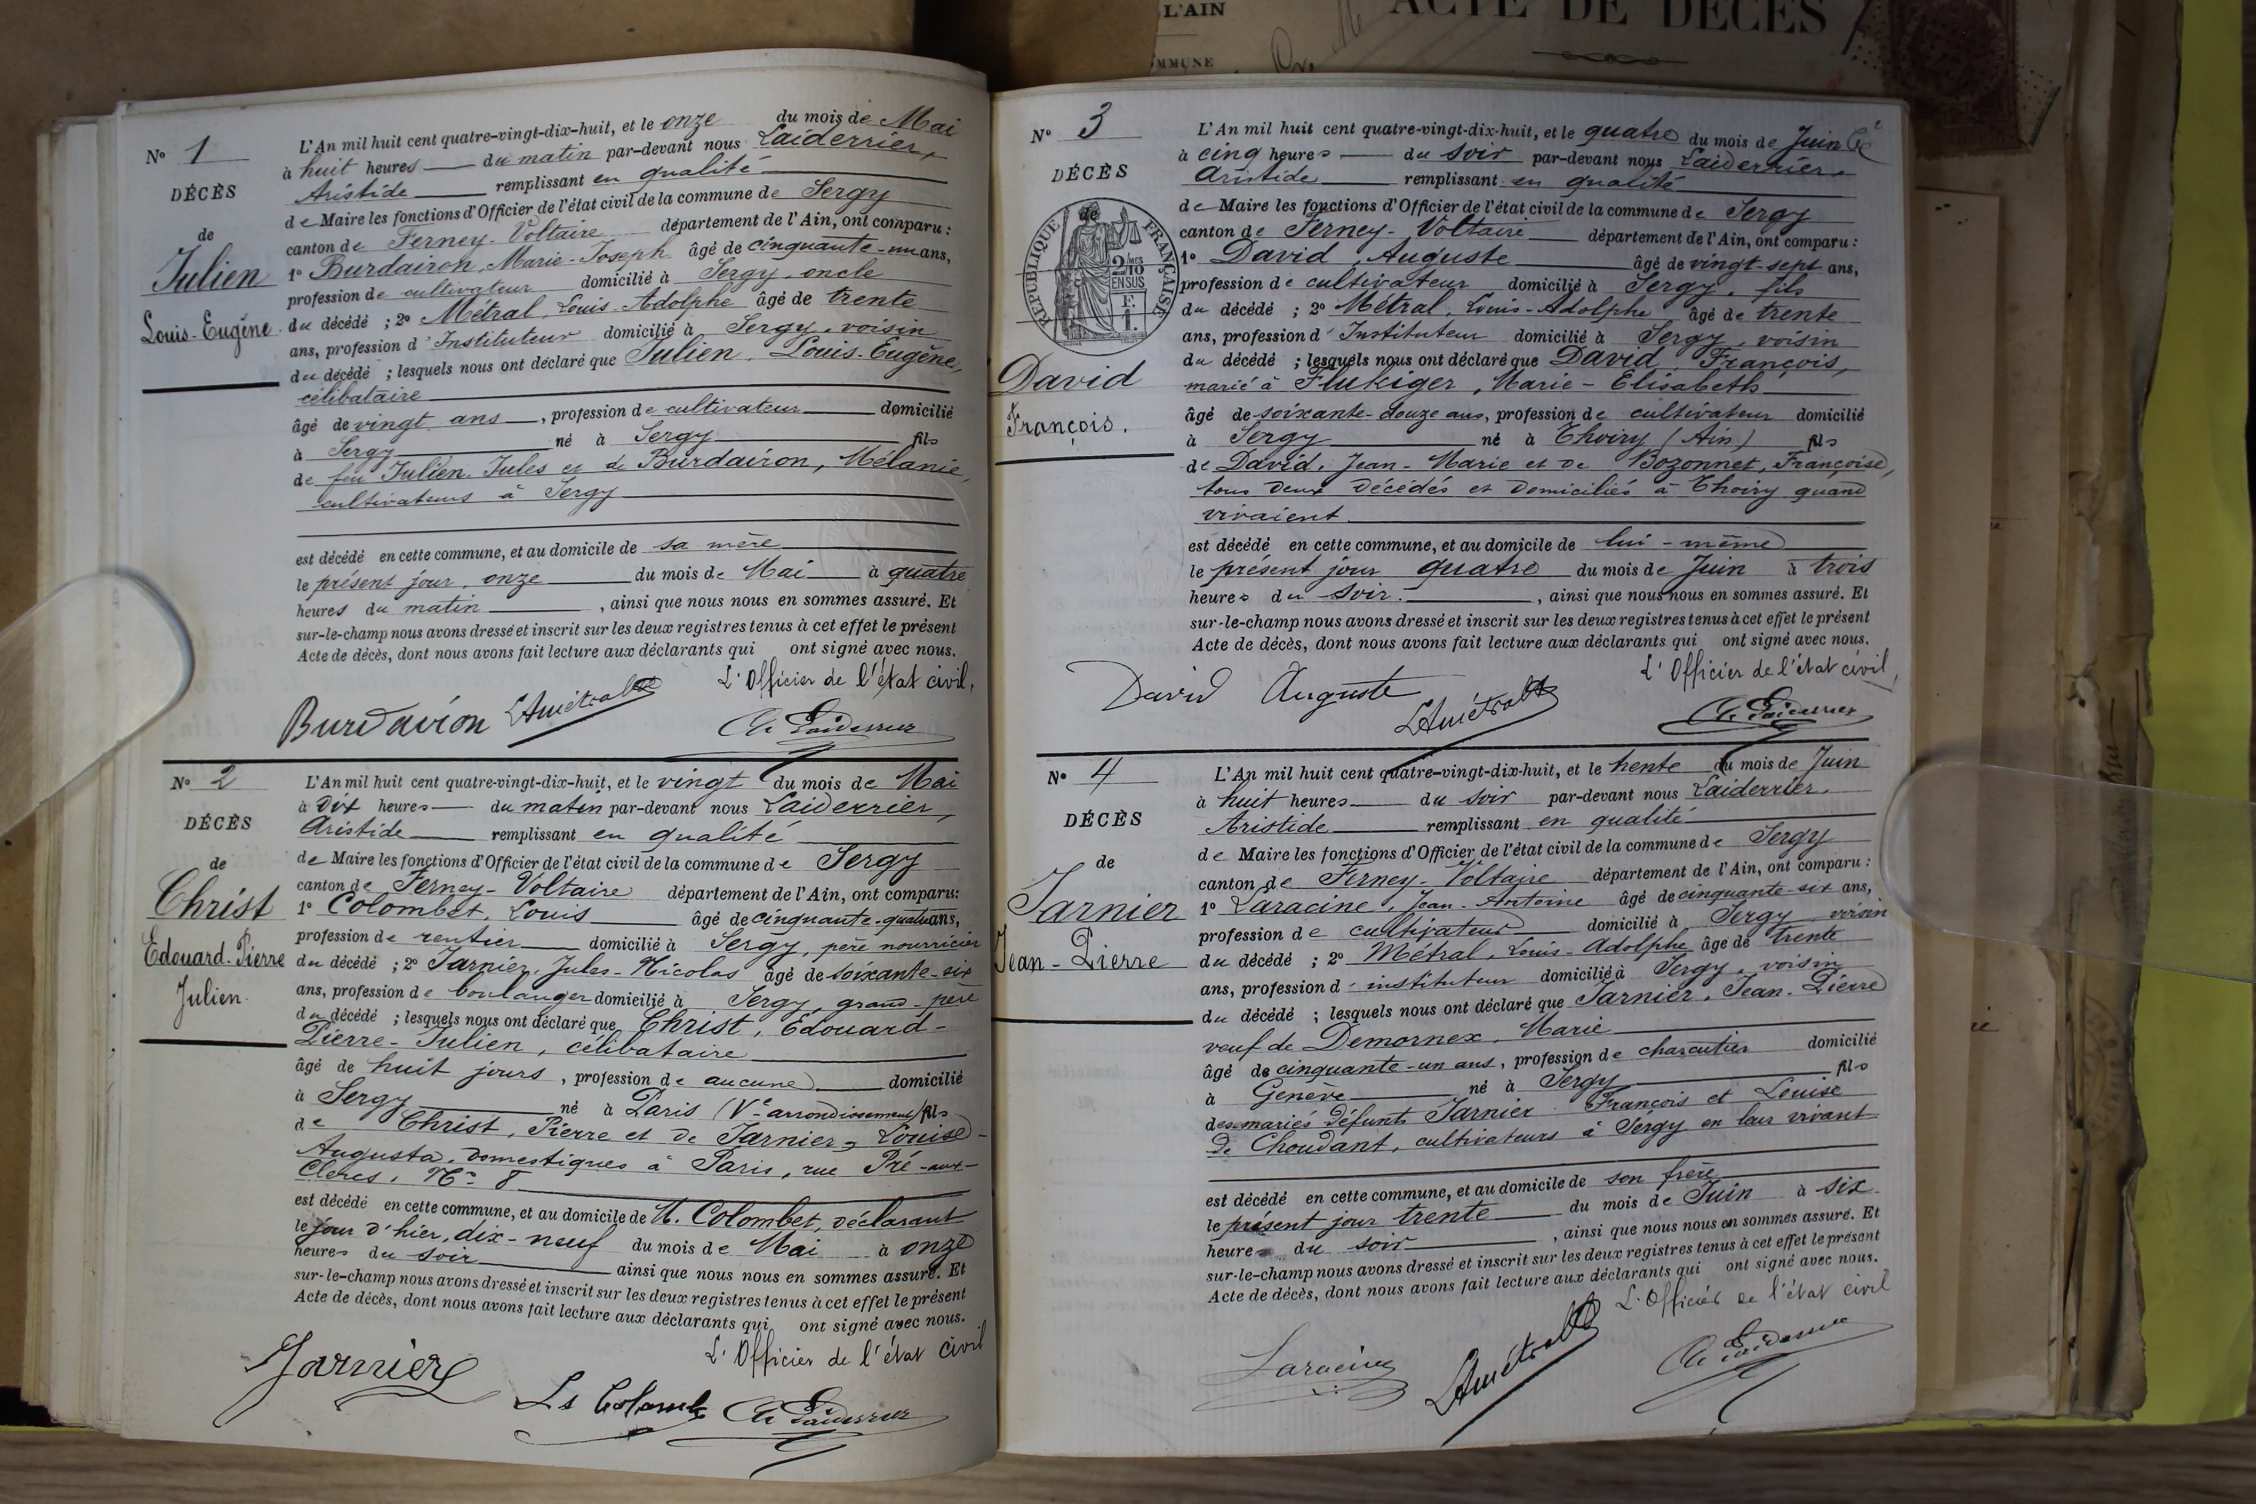 L'AIN
ACTE DE DÉCÈS
MMUNE
N° 1
DÉCÈS
de
Julien
Louis-Eugène.
L'An mil huit cent quatre-vingt-dix-huit, et le onze du mois de Mai
à huit heures du matin par-devant nous Laiderrier,
Aristide remplissant en qualité
de Maire les fonctions d'Officier de l'état civil de la commune de Sergy
canton de Ferney-Voltaire département de l'Ain, ont comparu :
1° Burdairon, Marie-Joseph âgé de cinquante-un ans,
profession de cultivateur domicilié à Sergy, oncle
du décédé ; 2° Métral, Louis-Adolphe âgé de trente
ans, profession d'Instituteur domicilié à Sergy, voisin
du décédé ; lesquels nous ont déclaré que Julien, Louis-Eugène,
célibataire
âgé de vingt ans, profession de cultivateur domicilié
à Sergy né à Sergy fils
de feu Julien Jules et de Burdairon, Mélanie,
cultivateurs à Sergy
est décédé en cette commune, et au domicile de sa mère
le présent jour, onze du mois de Mai à quatre
heures du matin, ainsi que nous nous en sommes assuré. Et
sur-le-champ nous avons dressé et inscrit sur les deux registres tenus à cet effet le présent
Acte de décès, dont nous avons fait lecture aux déclarants qui ont signé avec nous.
L'Officier de l'état civil,
Burdairon LAmétral A Laiderrier
N° 2
DÉCÈS
de
Christ
Edouard-Pierre
Julien
L'An mil huit cent quatre-vingt-dix-huit, et le vingt du mois de Mai
à dix heures du matin par-devant nous Laiderrier,
Aristide remplissant en qualité
de Maire les fonctions d'Officier de l'état civil de la commune de Sergy
canton de Ferney-Voltaire département de l'Ain, ont comparu :
1° Colombet, Louis âgé de cinquante-quatre ans,
profession de rentier domicilié à Sergy, père nourricier
du décédé ; 2° Jarnier, Jules-Nicolas âgé de soixante-six
ans, profession de boulanger domicilié à Sergy, grand-père
du décédé ; lesquels nous ont déclaré que Christ, Edouard-
Pierre-Julien, célibataire
âgé de huit jours, profession de aucune domicilié
à Sergy né à Paris (Ve arrondissement) fils
de Christ, Pierre et de Jarnier, Louise-
Augusta, domestiques à Paris, rue Pré-aux-
Clercs, N° 8
est décédé en cette commune, et au domicile de M. Colombet, déclarant
le jour d'hier, dix-neuf du mois de Mai à onze
heures du soir ainsi que nous nous en sommes assuré. Et
sur-le-champ nous avons dressé et inscrit sur les deux registres tenus à cet effet le présent
Acte de décès, dont nous avons fait lecture aux déclarants qui ont signé avec nous.
L'Officier de l'état civil
Jarnier Ls Colombet A Laiderrier
N° 3
DÉCÈS
de
RÉPUBLIQUE FRANÇAISE
2/10mes
EN SUS
F.
1.
David
François.
L'An mil huit cent quatre-vingt-dix-huit, et le quatre du mois de Juin
à cinq heures du soir par-devant nous Laiderrier,
Aristide remplissant en qualité
de Maire les fonctions d'Officier de l'état civil de la commune de Sergy
canton de Ferney-Voltaire département de l'Ain, ont comparu :
1° David, Auguste âgé de vingt-sept ans,
profession de cultivateur domicilié à Sergy, fils
du décédé ; 2° Métral, Louis-Adolphe âgé de trente
ans, profession d'Instituteur domicilié à Sergy, voisin
du décédé ; lesquels nous ont déclaré que David, François,
marié à Flukiger, Marie-Elisabeth
âgé de soixante-douze ans, profession de cultivateur domicilié
à Sergy né à Thoiry (Ain) fils
de David, Jean-Marie et de Bozonnet, Françoise,
tous deux décédés et domiciliés à Thoiry quand
vivaient
est décédé en cette commune, et au domicile de lui-même
le présent jour quatre du mois de Juin à trois
heures du soir, ainsi que nous nous en sommes assuré. Et
sur-le-champ nous avons dressé et inscrit sur les deux registres tenus à cet effet le présent
Acte de décès, dont nous avons fait lecture aux déclarants qui ont signé avec nous.
L'Officier de l'état civil,
David Auguste LAmétral A Laiderrier
N° 4
DÉCÈS
de
Jarnier
Jean-Pierre
L'An mil huit cent quatre-vingt-dix-huit, et le trente du mois de Juin
à huit heures du soir par-devant nous Laiderrier,
Aristide remplissant en qualité
de Maire les fonctions d'Officier de l'état civil de la commune de Sergy
canton de Ferney-Voltaire département de l'Ain, ont comparu :
1° Laracine, Jean-Antoine âgé de cinquante-six ans,
profession de cultivateur domicilié à Sergy voisin
du décédé ; 2° Métral, Louis-Adolphe âgé de trente
ans, profession d'instituteur domicilié à Sergy, voisin
du décédé ; lesquels nous ont déclaré que Jarnier, Jean-Pierre
veuf de Demornex, Marie
âgé de cinquante-un ans, profession de charcutier domicilié
à Genève né à Sergy fils
des mariés défunts Jarnier François et Louise
de Choudant, cultivateurs à Sergy en leur vivant
est décédé en cette commune, et au domicile de son frère
le présent jour trente du mois de Juin à six
heures du soir, ainsi que nous nous en sommes assuré. Et
sur-le-champ nous avons dressé et inscrit sur les deux registres tenus à cet effet le présent
Acte de décès, dont nous avons fait lecture aux déclarants qui ont signé avec nous.
L'Officier de l'état civil
Laracine LAmétral A Laiderrier